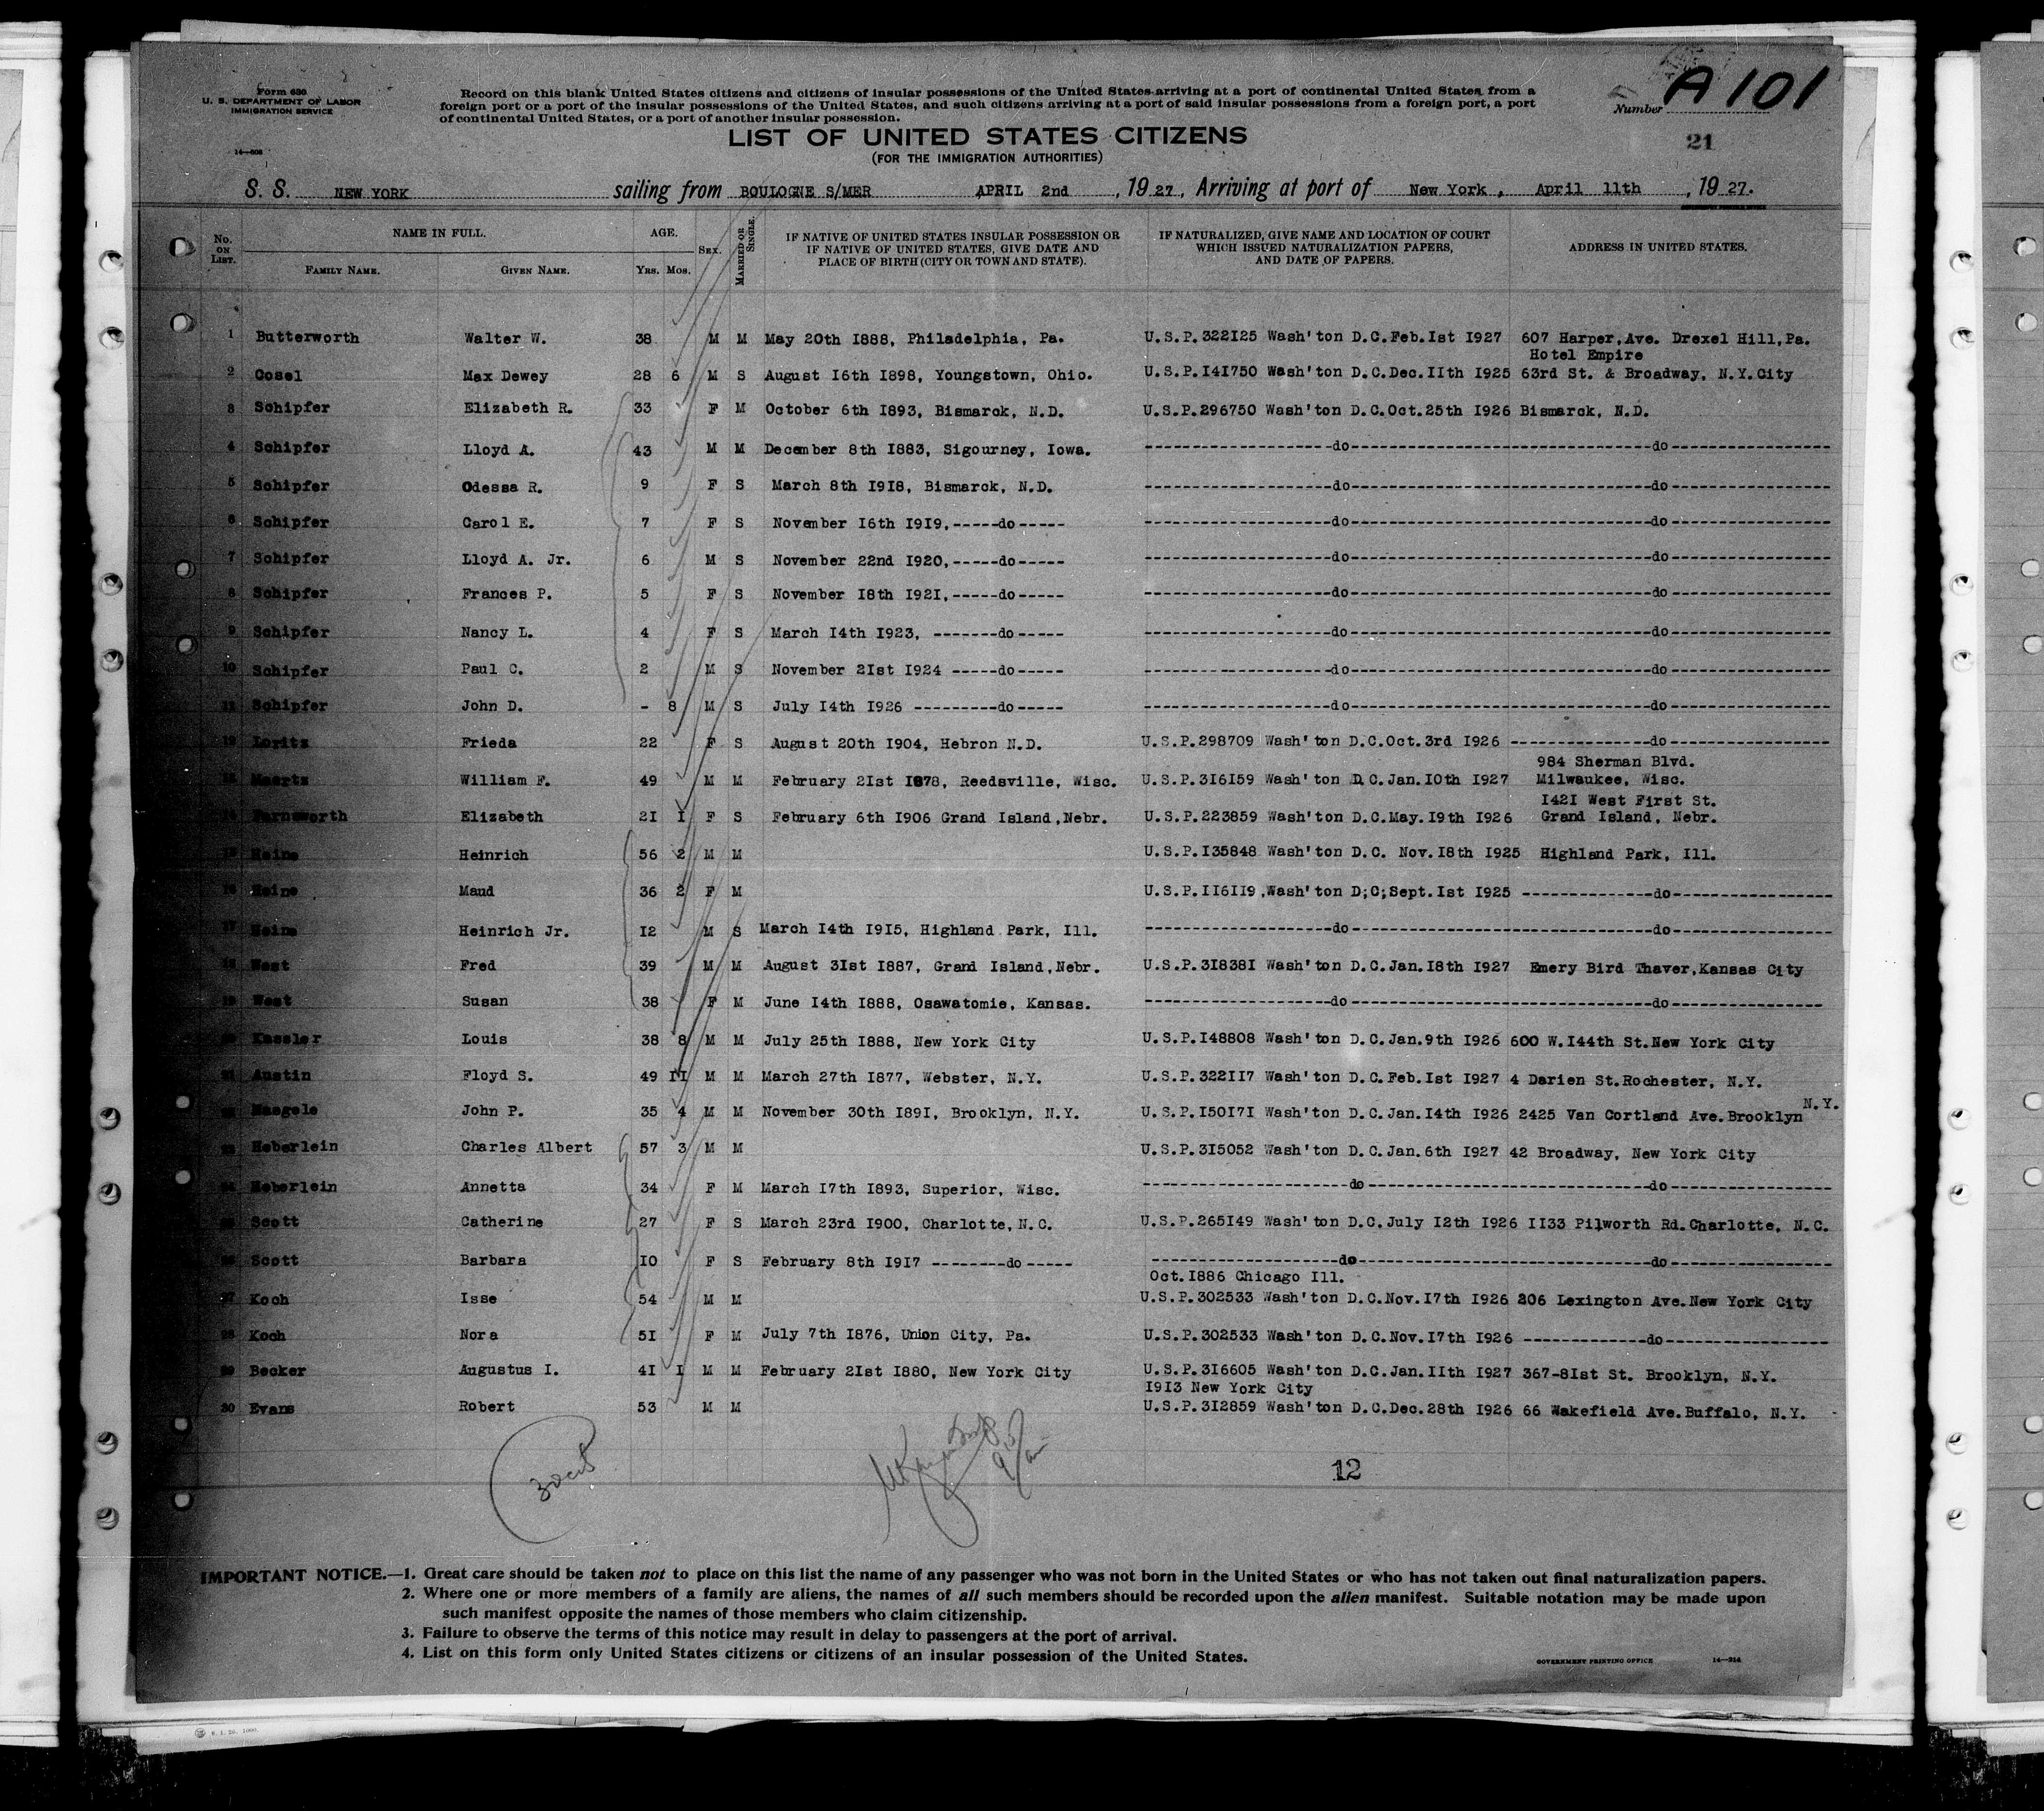 Form 630
U. S. DEPARTMENT OF LABOR
IMMIGRATION SERVICE
14—608
Record on this blank United States citizens and citizens of insular possessions of the United States arriving at a port of continental United States from a
foreign port or a port of the insular possessions of the United States, and such citizens arriving at a port of said insular possessions from a foreign port, a port
of continental United States, or a port of another insular possession.
Number A 101
21
LIST OF UNITED STATES CITIZENS
(FOR THE IMMIGRATION AUTHORITIES)
S. S. NEW YORK sailing from BOULOGNE S/MER APRIL 2nd , 19 27, Arriving at port of New York, April 11th , 19 27.
No. ON LIST. NAME IN FULL. FAMILY NAME. GIVEN NAME. AGE. YRS. MOS. SEX. MARRIED OR SINGLE. IF NATIVE OF UNITED STATES INSULAR POSSESSION OR IF NATIVE OF UNITED STATES, GIVE DATE AND PLACE OF BIRTH (CITY OR TOWN AND STATE). IF NATURALIZED, GIVE NAME AND LOCATION OF COURT WHICH ISSUED NATURALIZATION PAPERS, AND DATE OF PAPERS. ADDRESS IN UNITED STATES.
1 Butterworth Walter W. 38 M M May 20th 1888, Philadelphia, Pa. U.S.P.322125 Wash'ton D.C.Feb.1st 1927 607 Harper,Ave. Drexel Hill,Pa.
Hotel Empire
2 Cosel Max Dewey 28 6 M S August 16th 1898, Youngstown, Ohio. U.S.P.141750 Wash'ton D.C.Dec.11th 1925 63rd St. & Broadway, N.Y.City
3 Schipfer Elizabeth R. 33 F M October 6th 1893, Bismarck, N.D. U.S.P.296750 Wash'ton D.C.Oct.25th 1926 Bismarck, N.D.
4 Schipfer Lloyd A. 43 M M December 8th 1883, Sigourney, Iowa. -----do----- -----do-----
5 Schipfer Odessa R. 9 F S March 8th 1918, Bismarck, N.D. -----do----- -----do-----
6 Schipfer Carol E. 7 F S November 16th 1919,-----do----- -----do----- -----do-----
7 Schipfer Lloyd A. Jr. 6 M S November 22nd 1920,-----do----- -----do----- -----do-----
8 Schipfer Frances P. 5 F S November 18th 1921,-----do----- -----do----- -----do-----
9 Schipfer Nancy L. 4 F S March 14th 1923, -------do----- -----do----- -----do-----
10 Schipfer Paul C. 2 M S November 21st 1924 -----do----- -----do----- -----do-----
11 Schipfer John D. - 8 M S July 14th 1926 ---------do----- -----do----- -----do-----
12 Loritz Frieda 22 F S August 20th 1904, Hebron N.D. U.S.P.298709 Wash'ton D.C.Oct.3rd 1926 -----do-----
984 Sherman Blvd.
13 Maertz William F. 49 M M February 21st 1878, Reedsville, Wisc. U.S.P.316159 Wash'ton D.C.Jan.10th 1927 Milwaukee, Wisc.
1421 West First St.
14 Farnsworth Elizabeth 21 1 F S February 6th 1906 Grand Island,Nebr. U.S.P.223859 Wash'ton D.C.May.19th 1926 Grand Island, Nebr.
15 Heine Heinrich 56 2 M M U.S.P.135848 Wash'ton D.C. Nov.18th 1925 Highland Park, Ill.
16 Heine Maud 36 2 F M U.S.P.116119,Wash'ton D;C;Sept.1st 1925 -----do-----
17 Heine Heinrich Jr. 12 M S March 14th 1915, Highland Park, Ill. -----do----- -----do-----
18 West Fred 39 M M August 31st 1887, Grand Island,Nebr. U.S.P.318381 Wash'ton D.C.Jan.18th 1927 Emery Bird Thaver,Kansas City
19 West Susan 38 F M June 14th 1888, Osawatomie, Kansas. -----do----- -----do-----
20 Kassler Louis 38 8 M M July 25th 1888, New York City U.S.P.148808 Wash'ton D.C.Jan.9th 1926 600 W.144th St.New York City
21 Austin Floyd S. 49 11 M M March 27th 1877, Webster, N.Y. U.S.P.322117 Wash'ton D.C.Feb.1st 1927 4 Darien St.Rochester, N.Y.
22 Naegele John P. 35 4 M M November 30th 1891, Brooklyn, N.Y. U.S.P.150171 Wash'ton D.C.Jan.14th 1926 2425 Van Cortland Ave.Brooklyn N.Y.
23 Heberlein Charles Albert 57 3 M M U.S.P.315052 Wash'ton D.C.Jan.6th 1927 42 Broadway, New York City
24 Heberlein Annetta 34 F M March 17th 1893, Superior, Wisc. -----do----- -----do-----
25 Scott Catherine 27 F S March 23rd 1900, Charlotte,N.C. U.S.P.265149 Wash'ton D.C.July 12th 1926 1133 Pilworth Rd.Charlotte, N.C.
26 Scott Barbara 10 F S February 8th 1917 --------do----- -----do----- -----do-----
Oct.1886 Chicago Ill.
27 Koch Isse 54 M M U.S.P.302533 Wash'ton D.C.Nov.17th 1926 206 Lexington Ave.New York City
28 Koch Nora 51 F M July 7th 1876, Union City, Pa. U.S.P.302533 Wash'ton D.C.Nov.17th 1926 -----do-----
29 Becker Augustus I. 41 1 M M February 21st 1880, New York City U.S.P.316605 Wash'ton D.C.Jan.11th 1927 367-81st St. Brooklyn, N.Y.
1913 New York City
30 Evans Robert 53 M M U.S.P.312859 Wash'ton D.C.Dec.28th 1926 66 Wakefield Ave.Buffalo, N.Y.
12
IMPORTANT NOTICE.—1. Great care should be taken not to place on this list the name of any passenger who was not born in the United States or who has not taken out final naturalization papers.
2. Where one or more members of a family are aliens, the names of all such members should be recorded upon the alien manifest. Suitable notation may be made upon
such manifest opposite the names of those members who claim citizenship.
3. Failure to observe the terms of this notice may result in delay to passengers at the port of arrival.
4. List on this form only United States citizens or citizens of an insular possession of the United States.
GOVERNMENT PRINTING OFFICE 14—314